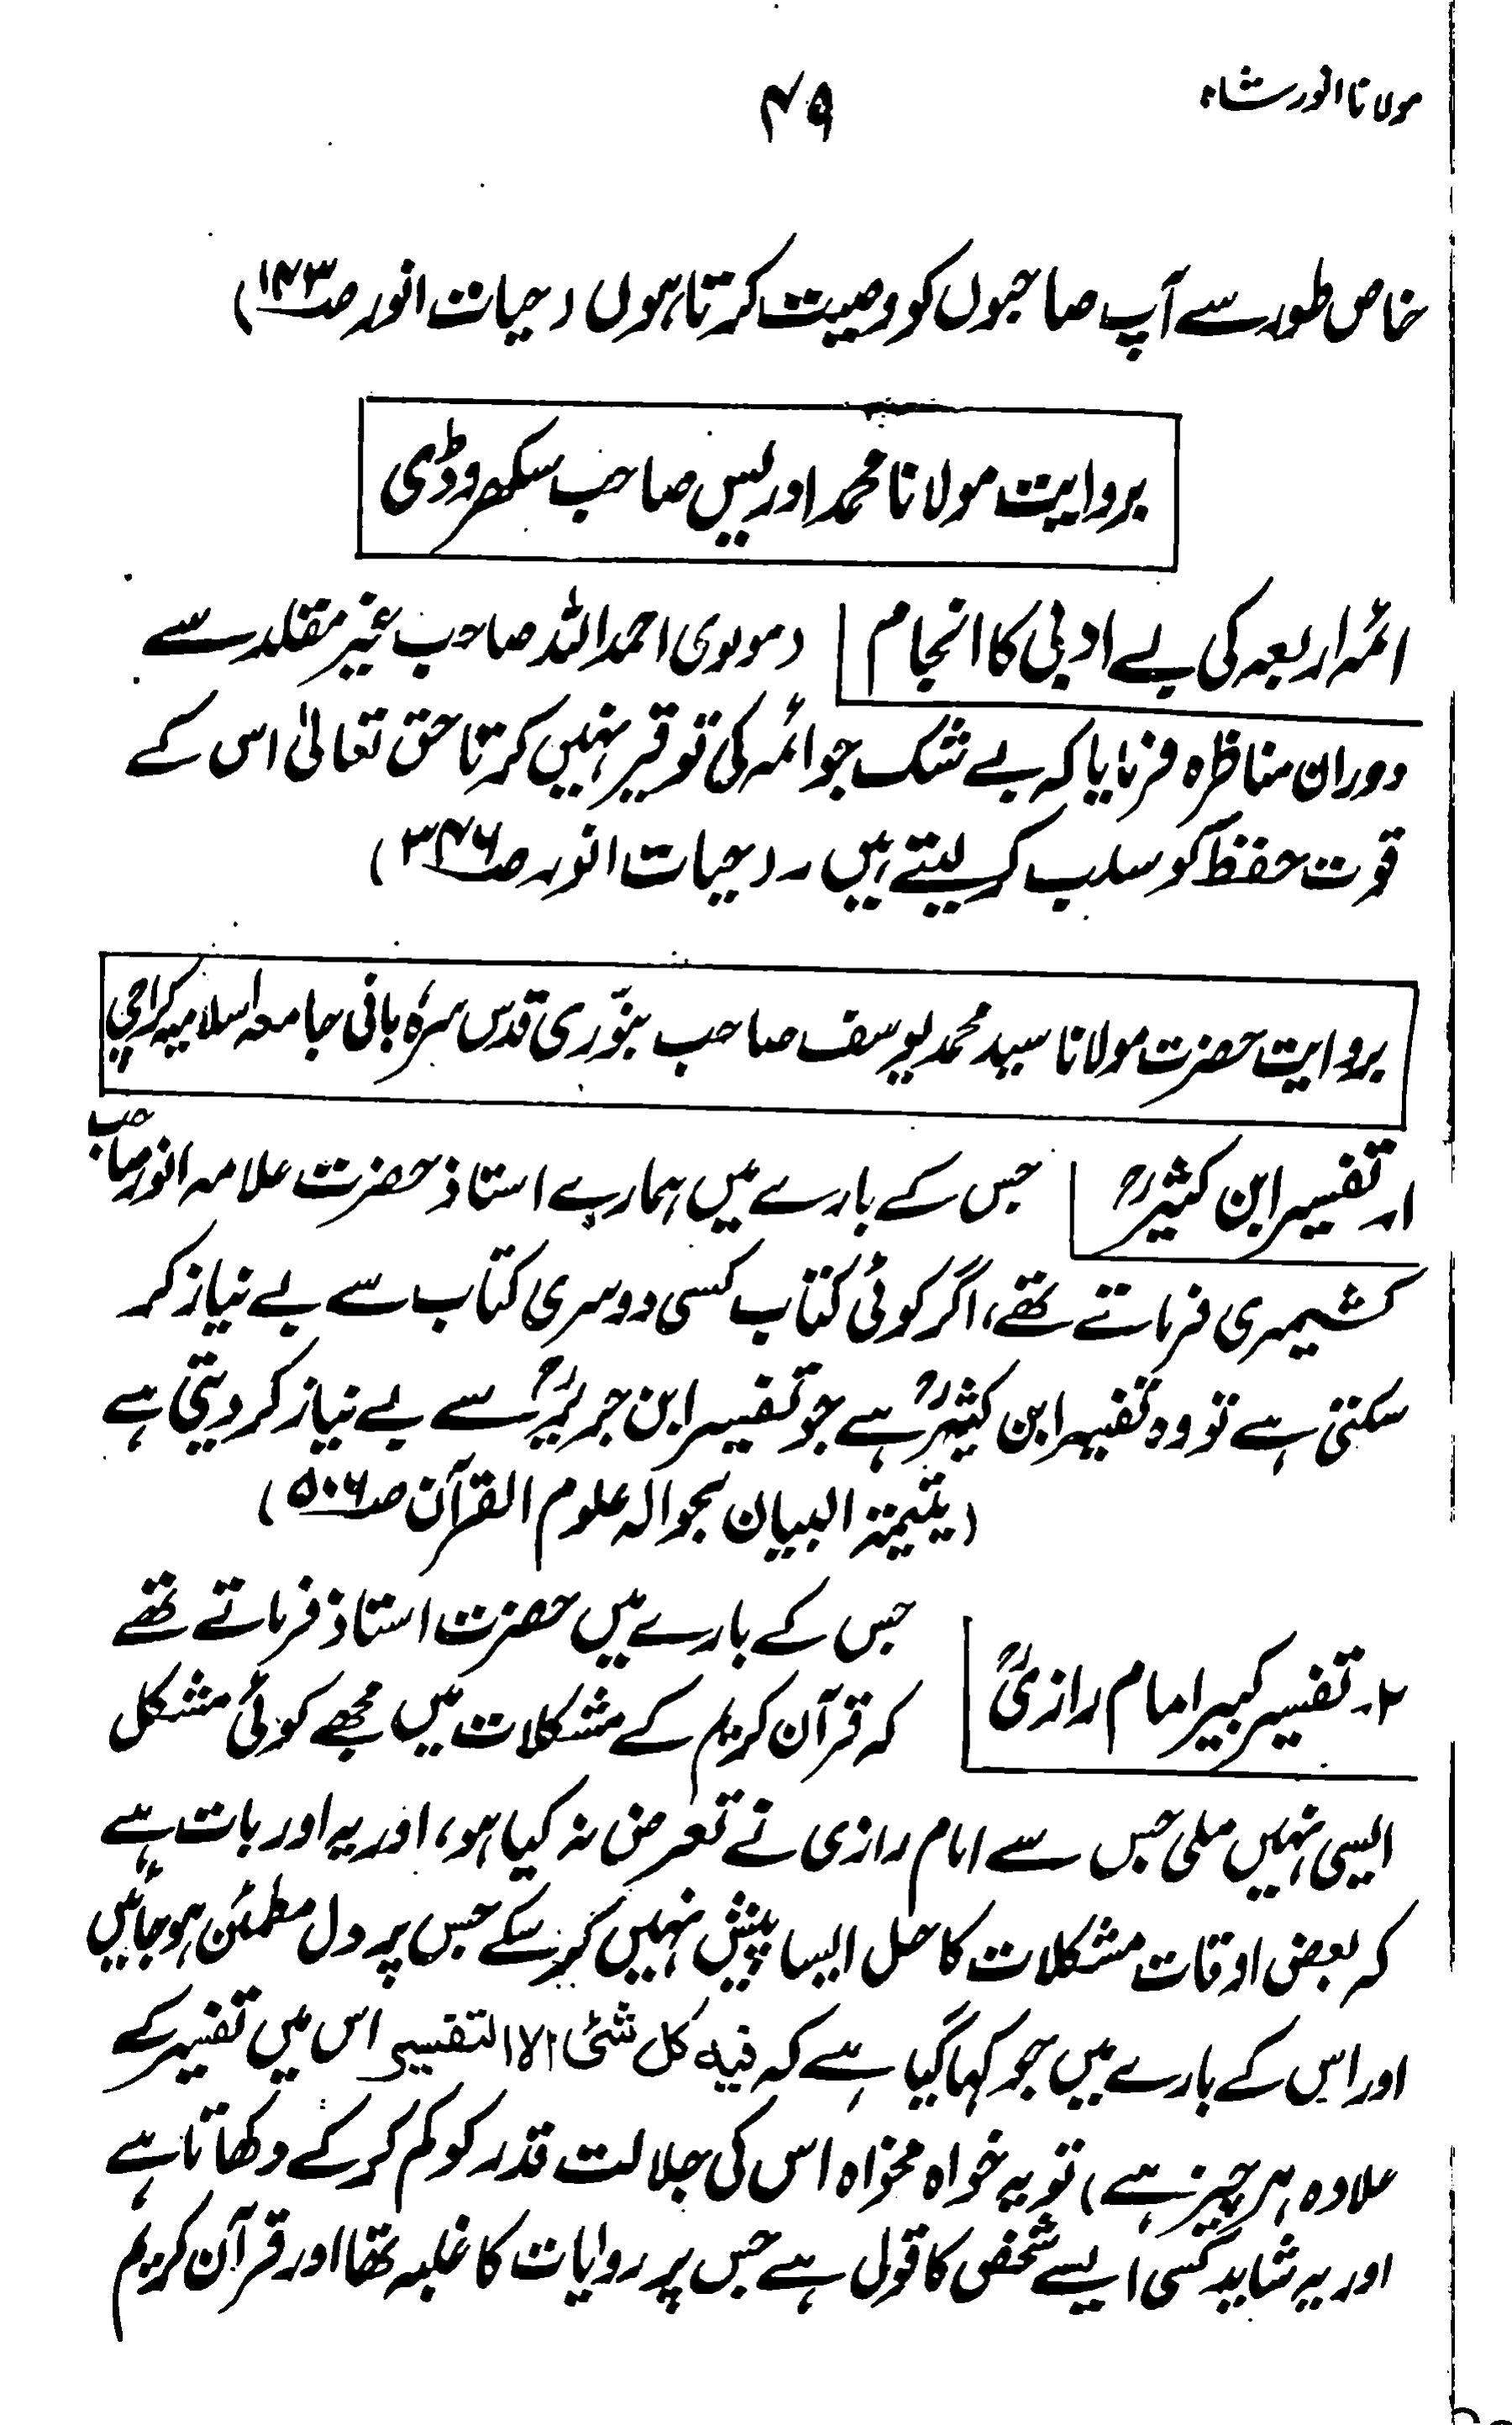 مولانا انور شاہ
۴۹
خاص طور سے آپ صاحبوں کو وصیت کرتا ہوں (حیات انور صـ۱۴۳)
بروایت مولانا محمد ادریس صاحب سکھروڈی
ائمہ اربعہ کی بے ادبی کا انجام (مولوی احمد اللہ صاحب غیر مقلد سے
دوران مناظرہ فرمایا کہ بے شک جو ائمہ کی توقیر نہیں کرتا حق تعالیٰ اس کے
قوت حفظ کو سلب کر لیتے ہیں ۔ (حیات انور صـ۳۴۶)
بروایت حضرت مولانا سید محمد یوسف صاحب بنوّری قدس سرہٗ بانی جامعہ اسلامیہ کراچی
۱۔ تفسیر ابن کثیرؒ جس کے بارے میں ہمارے استاذ حضرت علامہ انور صاحب
کشمیری فرماتے تھے، اگر کوئی کتاب کسی دوسری کتاب سے بے نیاز کر
سکتی ہے تو وہ تفسیر ابن کثیرؒ ہے جو تفسیر ابن جریرؒ سے بے نیاز کر دیتی ہے
(یتیمۃ البیان بحوالہ علوم القرآن صـ۵۰۶)
۲۔ تفسیر کبیر امام رازیؒ جس کے بارے میں حضرت استاذ فرماتے تھے
کہ قرآن کریم کے مشکلات میں مجھے کوئی مشکل
ایسی نہیں ملی جس سے امام رازی نے تعرض نہ کیا ہو، اور یہ اور بات ہے
کہ بعض اوقات مشکلات کا حل ایسا پیش نہیں کر سکے جس پر دل مطمئن ہو جائیں
اور اس کے بارے میں جو کہا گیا ہے کہ فیہ کل شئی الا التفسیر اس میں تفسیر کے
علاوہ ہر چیز ہے) تو یہ خواہ مخواہ اس کی جلالت قدر کو کم کر کے دکھاتا ہے
اور یہ شاید کسی ایسے شخص کا قول ہے جس پر روایات کا غلبہ تھا اور قرآن کریم